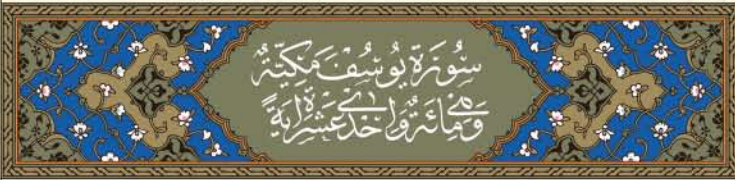 سُورَةُ يُوسُفَ مَكِّيَّةٌ
وَهِيَ مِائَةٌ وَإِحْدَى عَشْرَةَ اٰيَةً